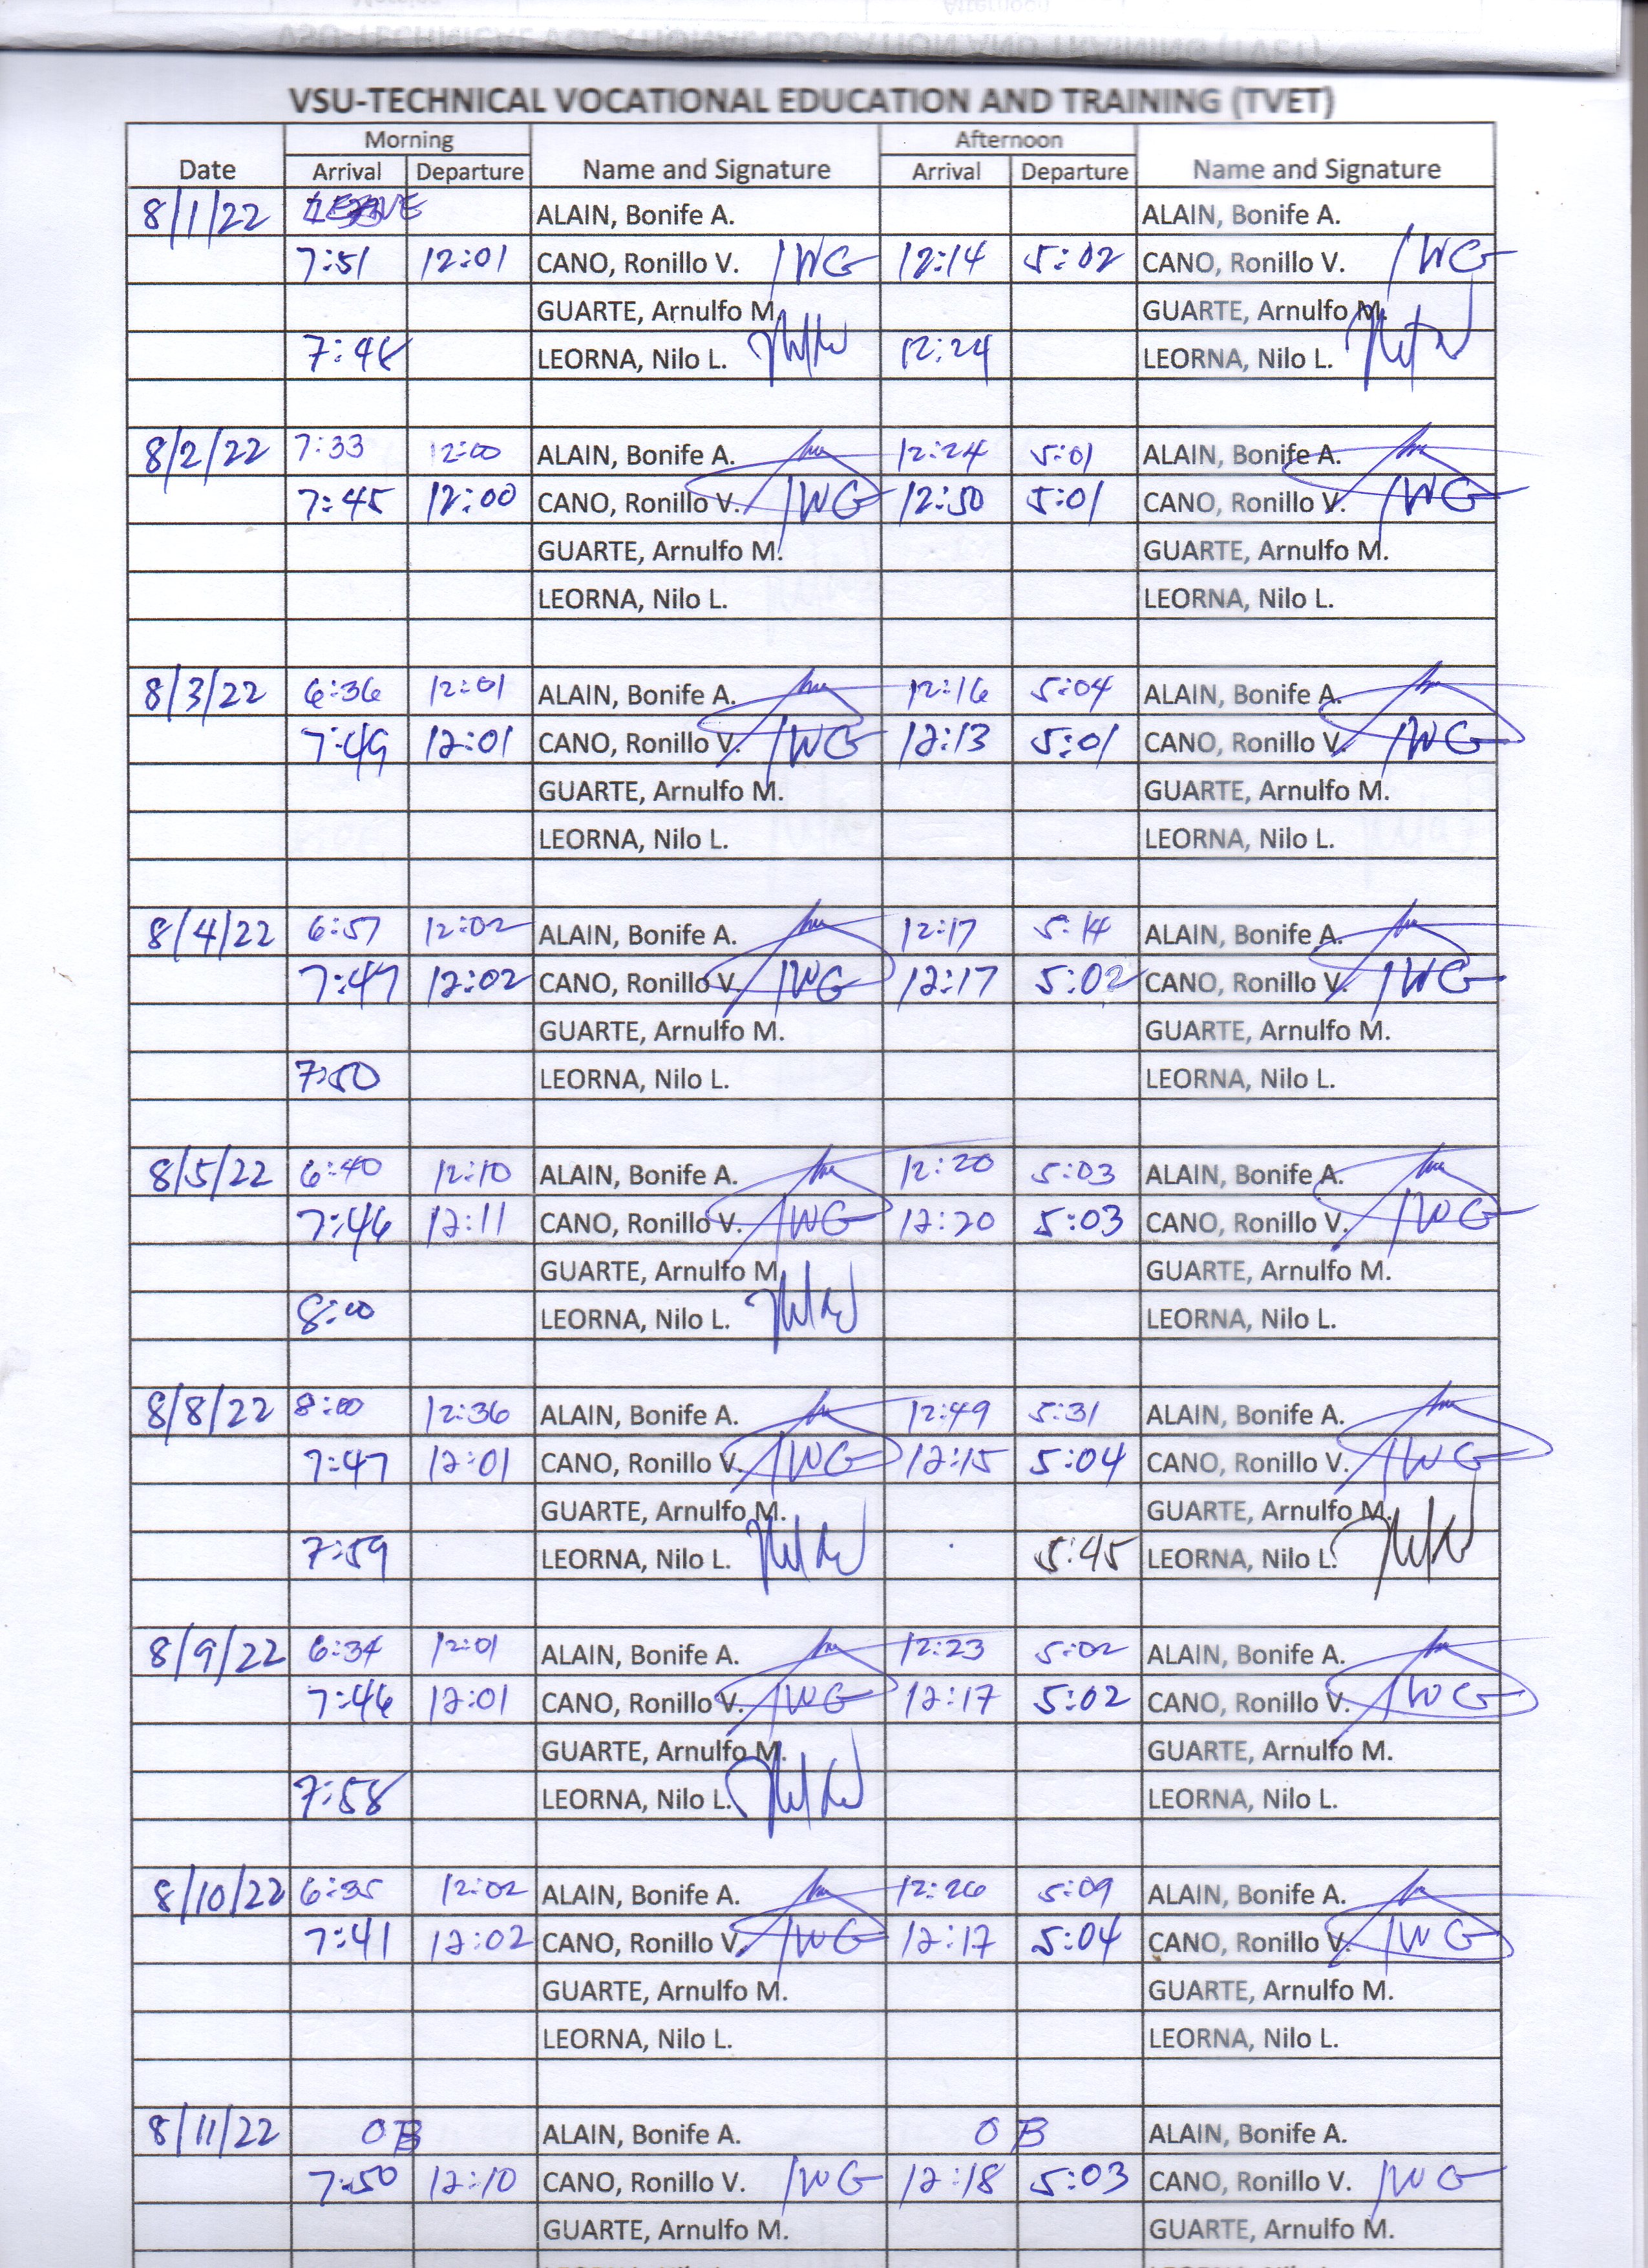 VSU-TECHNICAL VOCATIONAL EDUCATION AND TRAINING (TVET)
Morning Afternoon
Date Arrival Departure Name and Signature Arrival Departure Name and Signature
8/1/22 LEAVE ALAIN, Bonife A. ALAIN, Bonife A.
7:51 12:01 CANO, Ronillo V. 12:14 5:02 CANO, Ronillo V.
GUARTE, Arnulfo M. GUARTE, Arnulfo M.
7:48 LEORNA, Nilo L. 12:24 LEORNA, Nilo L.
8/2/22 7:33 12:00 ALAIN, Bonife A. 12:24 5:01 ALAIN, Bonife A.
7:45 12:00 CANO, Ronillo V. 12:30 5:01 CANO, Ronillo V.
GUARTE, Arnulfo M. GUARTE, Arnulfo M.
LEORNA, Nilo L. LEORNA, Nilo L.
8/3/22 6:36 12:01 ALAIN, Bonife A. 12:16 5:04 ALAIN, Bonife A.
7:49 12:01 CANO, Ronillo V. 12:13 5:01 CANO, Ronillo V.
GUARTE, Arnulfo M. GUARTE, Arnulfo M.
LEORNA, Nilo L. LEORNA, Nilo L.
8/4/22 6:57 12:02 ALAIN, Bonife A. 12:17 5:14 ALAIN, Bonife A.
7:47 12:02 CANO, Ronillo V. 12:17 5:02 CANO, Ronillo V.
GUARTE, Arnulfo M. GUARTE, Arnulfo M.
7:50 LEORNA, Nilo L. LEORNA, Nilo L.
8/5/22 6:40 12:10 ALAIN, Bonife A. 12:20 5:03 ALAIN, Bonife A.
7:46 12:11 CANO, Ronillo V. 12:20 5:03 CANO, Ronillo V.
GUARTE, Arnulfo M. GUARTE, Arnulfo M.
8:00 LEORNA, Nilo L. LEORNA, Nilo L.
8/8/22 8:00 12:36 ALAIN, Bonife A. 12:49 5:31 ALAIN, Bonife A.
7:47 12:01 CANO, Ronillo V. 12:15 5:04 CANO, Ronillo V.
GUARTE, Arnulfo M. GUARTE, Arnulfo M.
7:59 LEORNA, Nilo L. 5:45 LEORNA, Nilo L.
8/9/22 6:34 12:01 ALAIN, Bonife A. 12:23 5:02 ALAIN, Bonife A.
7:46 12:01 CANO, Ronillo V. 12:17 5:02 CANO, Ronillo V.
GUARTE, Arnulfo M. GUARTE, Arnulfo M.
7:58 LEORNA, Nilo L. LEORNA, Nilo L.
8/10/22 6:35 12:02 ALAIN, Bonife A. 12:26 5:09 ALAIN, Bonife A.
7:41 12:02 CANO, Ronillo V. 12:17 5:04 CANO, Ronillo V.
GUARTE, Arnulfo M. GUARTE, Arnulfo M.
LEORNA, Nilo L. LEORNA, Nilo L.
8/11/22 OB ALAIN, Bonife A. OB ALAIN, Bonife A.
7:50 12:10 CANO, Ronillo V. 12:18 5:03 CANO, Ronillo V.
GUARTE, Arnulfo M. GUARTE, Arnulfo M.